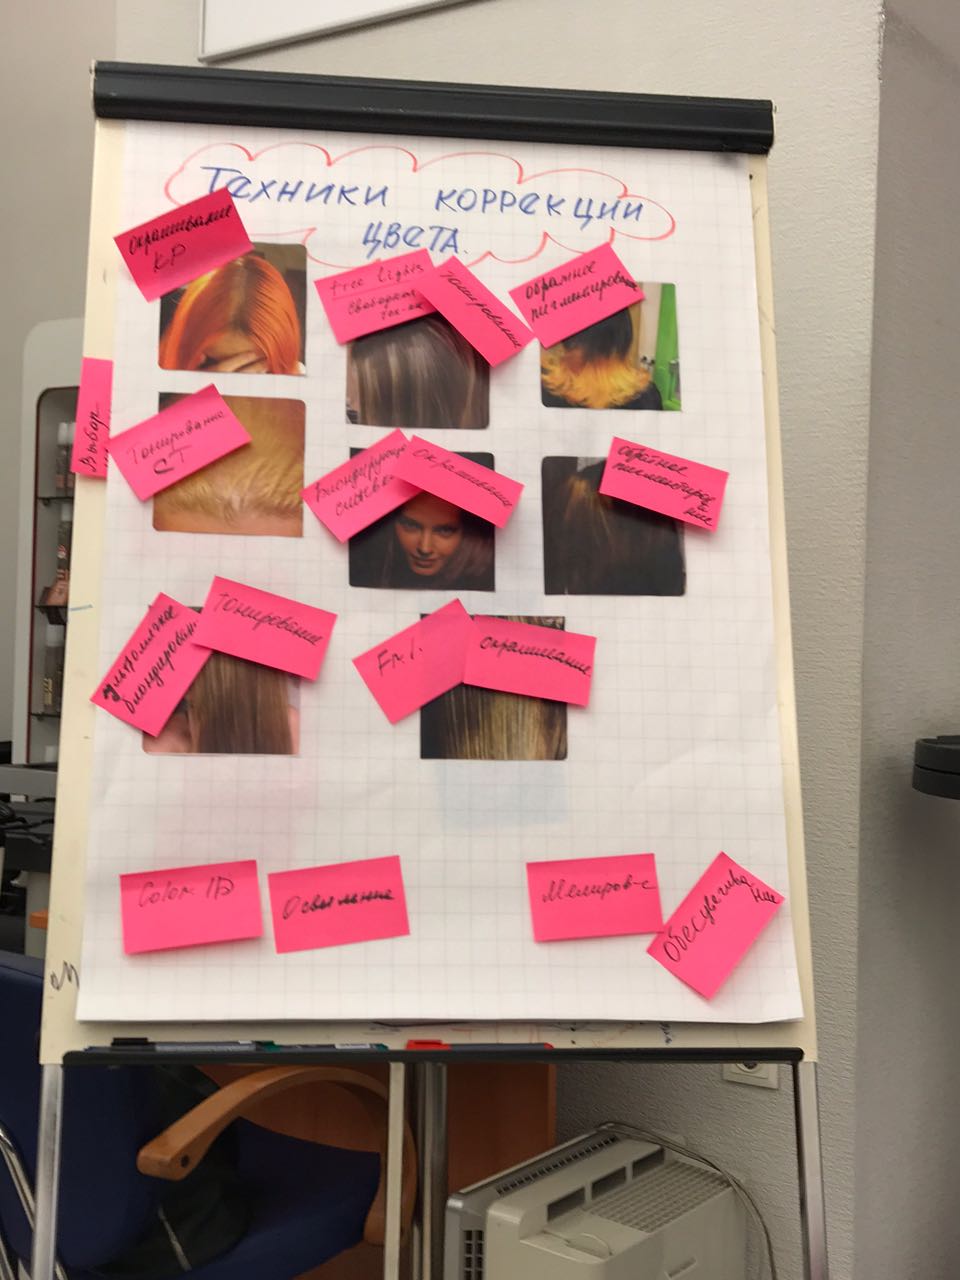 Техники коррекции
цвета.
Окрашивание
КР
Free Lights
Свободная
тех-ка
Тонирование
обратное
пигментирование
Выбор
Тонирование
СТ
Блондирующ
смывка
Окрашивание
обратное
пигментирова
ние
ультамягкое
блондирован
Тонирование
F.к.l.
окрашивание
Color ID
Осветление
Мелиров-е
Обесцвечива
ние